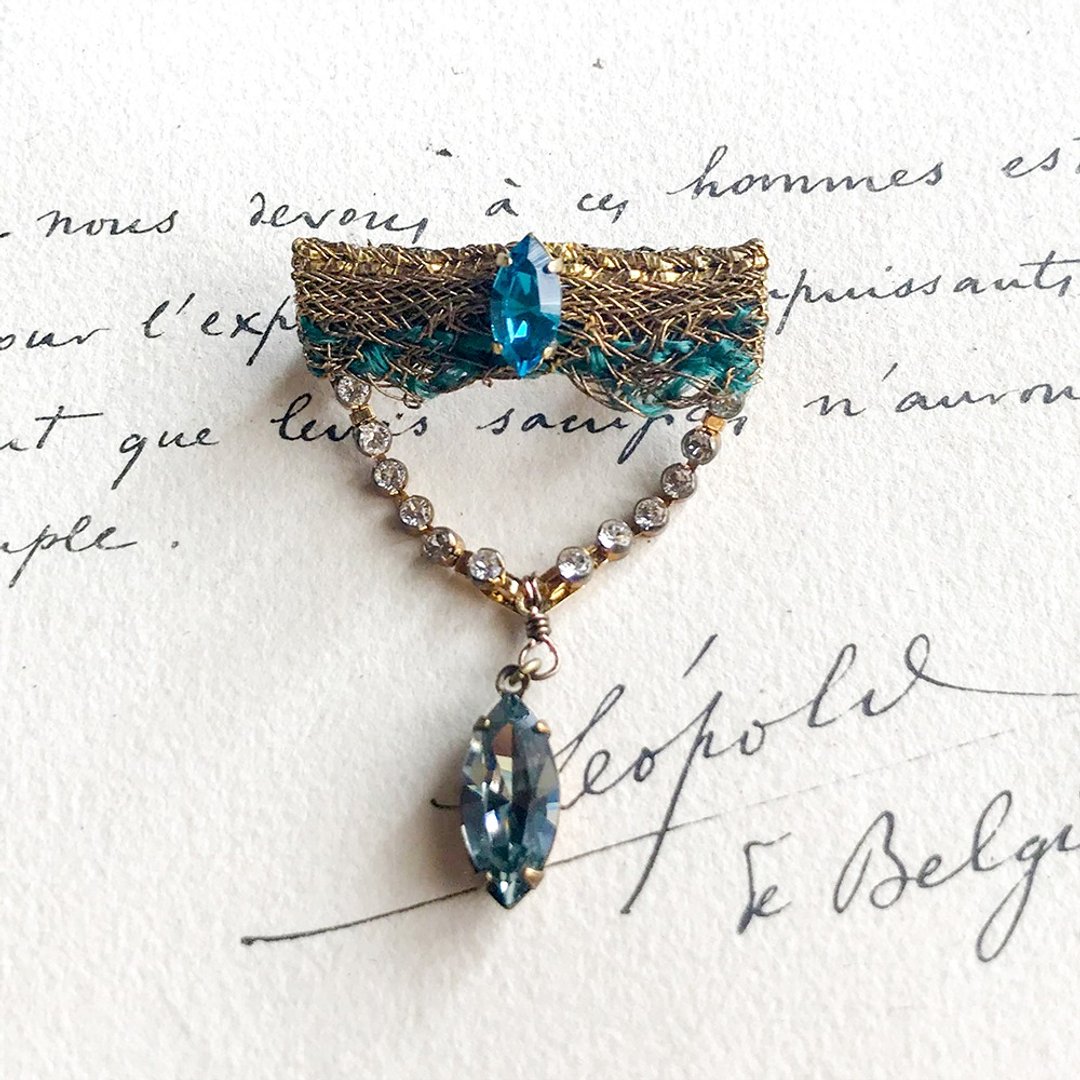 nous devons à ces hommes est
pour l'exp puissants
que leurs sacrifices n'auron
mple.
Léopold
de Belgi